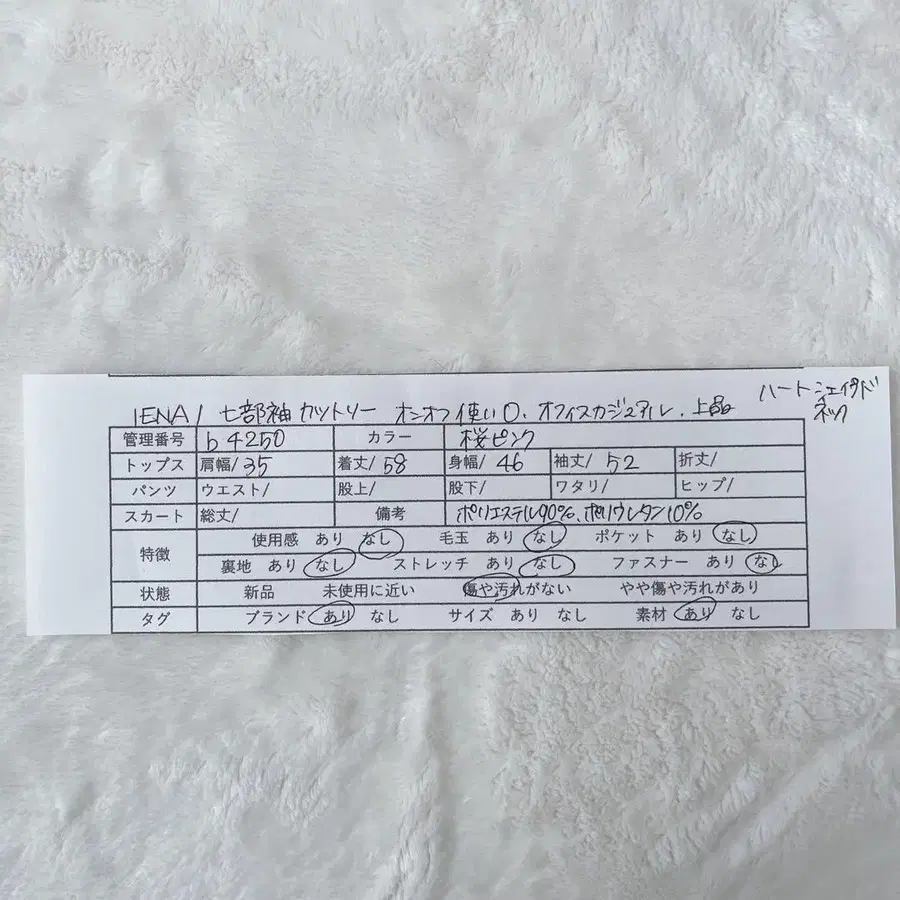 ハートシェイプド
ネック
IENA / 七部袖カットソー オンオフ使い○. オフィスカジュアル. 上品
管理番号 b4250 カラー 桜ピンク
トップス 肩幅/ 35 着丈/ 58 身幅/ 46 袖丈/ 52 裄丈/
パンツ ウエスト/ 股上/ 股下/ ワタリ/ ヒップ/
スカート 総丈/ 備考 ポリエステル90%、ポリウレタン10%
特徴 使用感 あり なし 毛玉 あり なし ポケット あり なし
裏地 あり なし ストレッチ あり なし ファスナー あり なし
状態 新品 未使用に近い 傷や汚れがない やや傷や汚れがあり
タグ ブランド あり なし サイズ あり なし 素材 あり なし